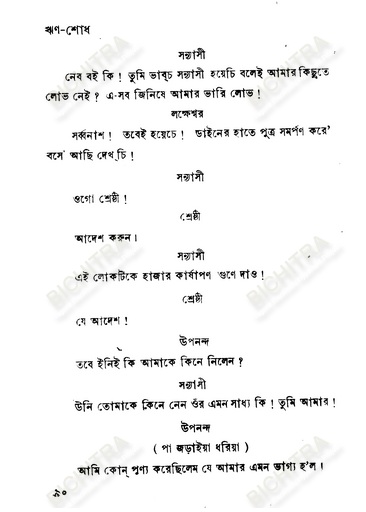 ঋণ-শোধ
সন্ন্যাসী
নেব বই কি! তুমি ভাব্‌চ সন্ন্যাসী হয়েচি বলেই আমার কিছুতে
লোভ নেই? এ-সব জিনিষে আমার ভারি লোভ!
লক্ষেশ্বর
সর্ব্বনাশ! তবেই হয়েচে! ডাইনের হাতে পুত্র সমর্পণ করে'
বসে' আছি দেখ্‌চি!
সন্ন্যাসী
ওগো শ্রেষ্ঠী!
শ্রেষ্ঠী
আদেশ করুন।
সন্ন্যাসী
এই লোকটিকে হাজার কার্যাপণ গুণে দাও!
শ্রেষ্ঠী
যে আদেশ!
উপনন্দ
তবে ইনিই কি আমাকে কিনে নিলেন?
সন্ন্যাসী
উনি তোমাকে কিনে নেন ওঁর এমন সাধ্য কি! তুমি আমার!
উপনন্দ
( পা জড়াইয়া ধরিয়া )
আমি কোন্ পুণ্য করেছিলেম যে আমার এমন ভাগ্য হ'ল।
৯০
BICHITRA
BICHITRA
BICHITRA
BICHITRA
BICHITRA
BICHITRA